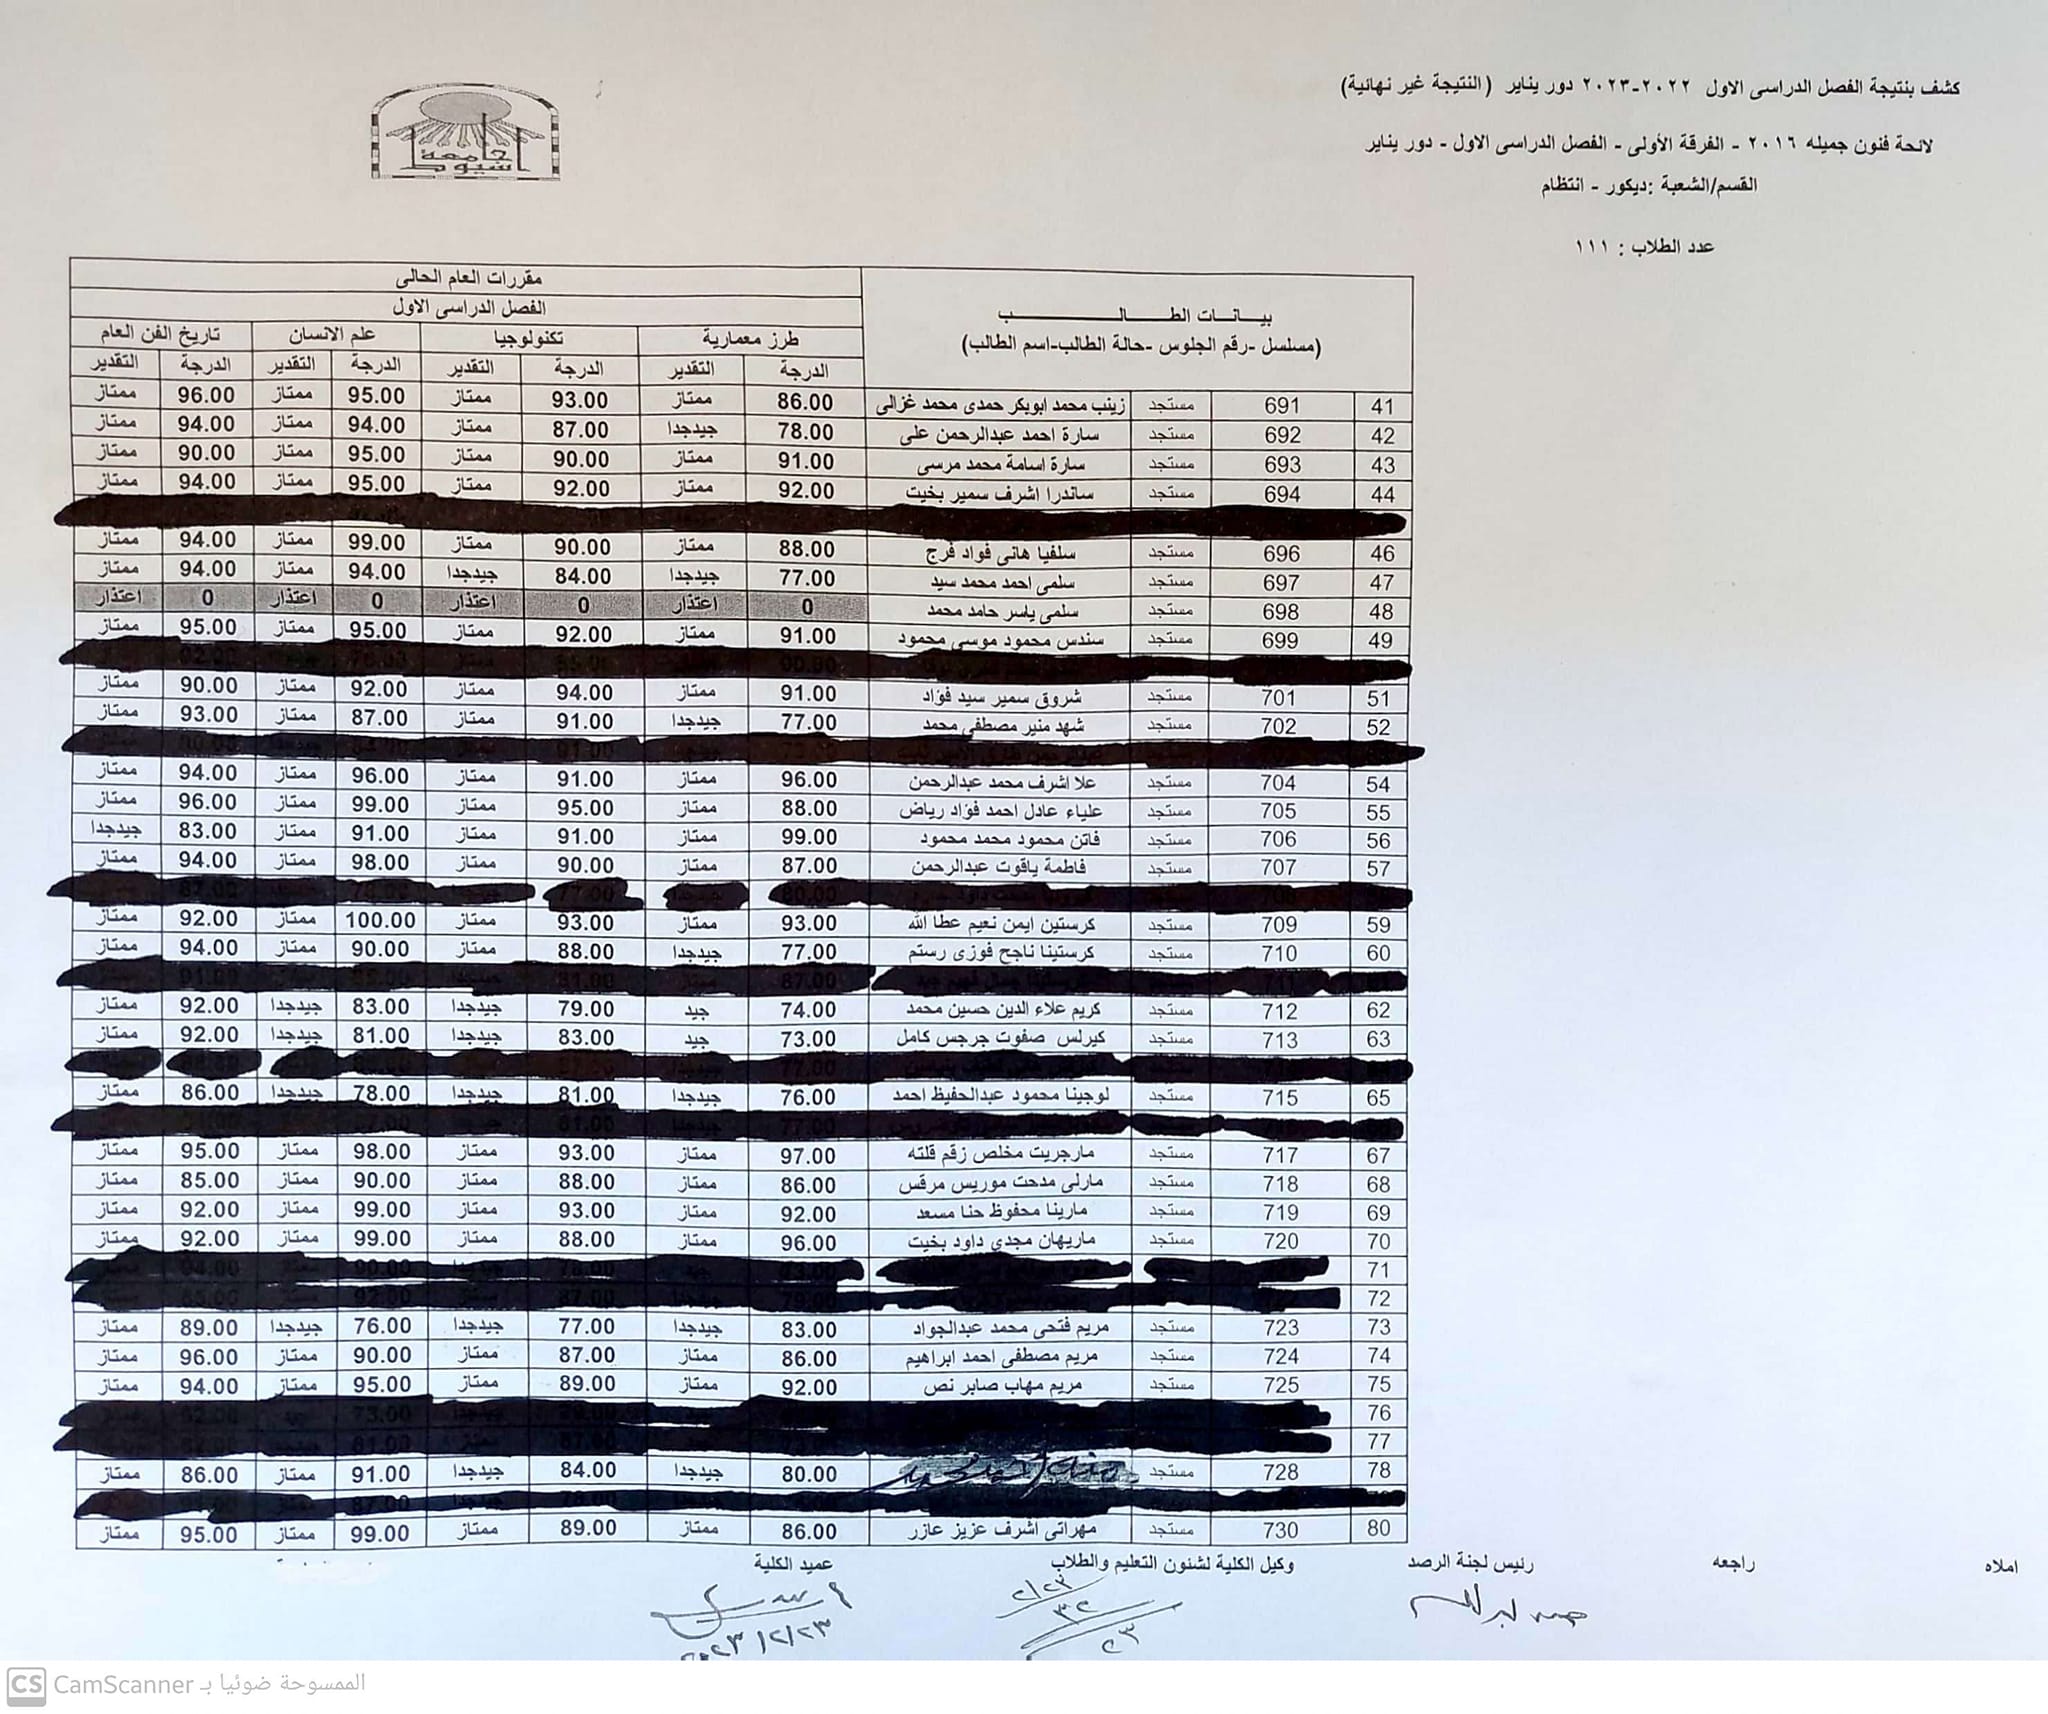 كشف بنتيجة الفصل الدراسى الاول ٢٠٢٢-٢٠٢٣ دور يناير (النتيجة غير نهائية)
جامعة اسيوط
لائحة فنون جميله ٢٠١٦ - الفرقة الأولى - الفصل الدراسى الاول - دور يناير
القسم/الشعبة :ديكور - انتظام
عدد الطلاب : ١١١
مقررات العام الحالى
الفصل الدراسى الاول
بيـــانـــات الطـــالـــــــب
(مسلسل -رقم الجلوس -حالة الطالب-اسم الطالب)
طرز معمارية تكنولوجيا علم الانسان تاريخ الفن العام
الدرجة التقدير الدرجة التقدير الدرجة التقدير الدرجة التقدير
41 691 مستجد زينب محمد ابوبكر حمدى محمد غزالى 86.00 ممتاز 93.00 ممتاز 95.00 ممتاز 96.00 ممتاز
42 692 مستجد سارة احمد عبدالرحمن على 78.00 جيدجدا 87.00 ممتاز 94.00 ممتاز 94.00 ممتاز
43 693 مستجد سارة اسامة محمد مرسى 91.00 ممتاز 90.00 ممتاز 95.00 ممتاز 90.00 ممتاز
44 694 مستجد ساندرا اشرف سمير بخيت 92.00 ممتاز 92.00 ممتاز 95.00 ممتاز 94.00 ممتاز
46 696 مستجد سلفيا هانى فواد فرج 88.00 ممتاز 90.00 ممتاز 99.00 ممتاز 94.00 ممتاز
47 697 مستجد سلمى احمد محمد سيد 77.00 جيدجدا 84.00 جيدجدا 94.00 ممتاز 94.00 ممتاز
48 698 مستجد سلمى ياسر حامد محمد 0 اعتذار 0 اعتذار 0 اعتذار 0 اعتذار
49 699 مستجد سندس محمود موسى محمود 91.00 ممتاز 92.00 ممتاز 95.00 ممتاز 95.00 ممتاز
51 701 مستجد شروق سمير سيد فؤاد 91.00 ممتاز 94.00 ممتاز 92.00 ممتاز 90.00 ممتاز
52 702 مستجد شهد منير مصطفى محمد 77.00 جيدجدا 91.00 ممتاز 87.00 ممتاز 93.00 ممتاز
54 704 مستجد علا اشرف محمد عبدالرحمن 96.00 ممتاز 91.00 ممتاز 96.00 ممتاز 94.00 ممتاز
55 705 مستجد علياء عادل احمد فؤاد رياض 88.00 ممتاز 95.00 ممتاز 99.00 ممتاز 96.00 ممتاز
56 706 مستجد فاتن محمود محمد محمود 99.00 ممتاز 91.00 ممتاز 91.00 ممتاز 83.00 جيدجدا
57 707 مستجد فاطمة ياقوت عبدالرحمن 87.00 ممتاز 90.00 ممتاز 98.00 ممتاز 94.00 ممتاز
59 709 مستجد كرستين ايمن نعيم عطا الله 93.00 ممتاز 93.00 ممتاز 100.00 ممتاز 92.00 ممتاز
60 710 مستجد كرستينا ناجح فوزى رستم 77.00 جيدجدا 88.00 ممتاز 90.00 ممتاز 94.00 ممتاز
62 712 مستجد كريم علاء الدين حسين محمد 74.00 جيد 79.00 جيدجدا 83.00 جيدجدا 92.00 ممتاز
63 713 مستجد كيرلس صفوت جرجس كامل 73.00 جيد 83.00 جيدجدا 81.00 جيدجدا 92.00 ممتاز
65 715 مستجد لوجينا محمود عبدالحفيظ احمد 76.00 جيدجدا 81.00 جيدجدا 78.00 جيدجدا 86.00 ممتاز
67 717 مستجد مارجريت مخلص زقم قلته 97.00 ممتاز 93.00 ممتاز 98.00 ممتاز 95.00 ممتاز
68 718 مستجد مارلى مدحت موريس مرقس 86.00 ممتاز 88.00 ممتاز 90.00 ممتاز 85.00 ممتاز
69 719 مستجد مارينا محفوظ حنا مسعد 92.00 ممتاز 93.00 ممتاز 99.00 ممتاز 92.00 ممتاز
70 720 مستجد ماريهان مجدى داود بخيت 96.00 ممتاز 88.00 ممتاز 99.00 ممتاز 92.00 ممتاز
71
72
73 723 مستجد مريم فتحى محمد عبدالجواد 83.00 جيدجدا 77.00 جيدجدا 76.00 جيدجدا 89.00 ممتاز
74 724 مستجد مريم مصطفى احمد ابراهيم 86.00 ممتاز 87.00 ممتاز 90.00 ممتاز 96.00 ممتاز
75 725 مستجد مريم مهاب صابر نص 92.00 ممتاز 89.00 ممتاز 95.00 ممتاز 94.00 ممتاز
76
77
78 728 مستجد 80.00 جيدجدا 84.00 جيدجدا 91.00 ممتاز 86.00 ممتاز
80 730 مستجد مهراتى اشرف عزيز عازر 86.00 ممتاز 89.00 ممتاز 99.00 ممتاز 95.00 ممتاز
املاه راجعه رئيس لجنة الرصد وكيل الكلية لشنون التعليم والطلاب عميد الكلية
CS CamScanner الممسوحة ضوئيا بـ